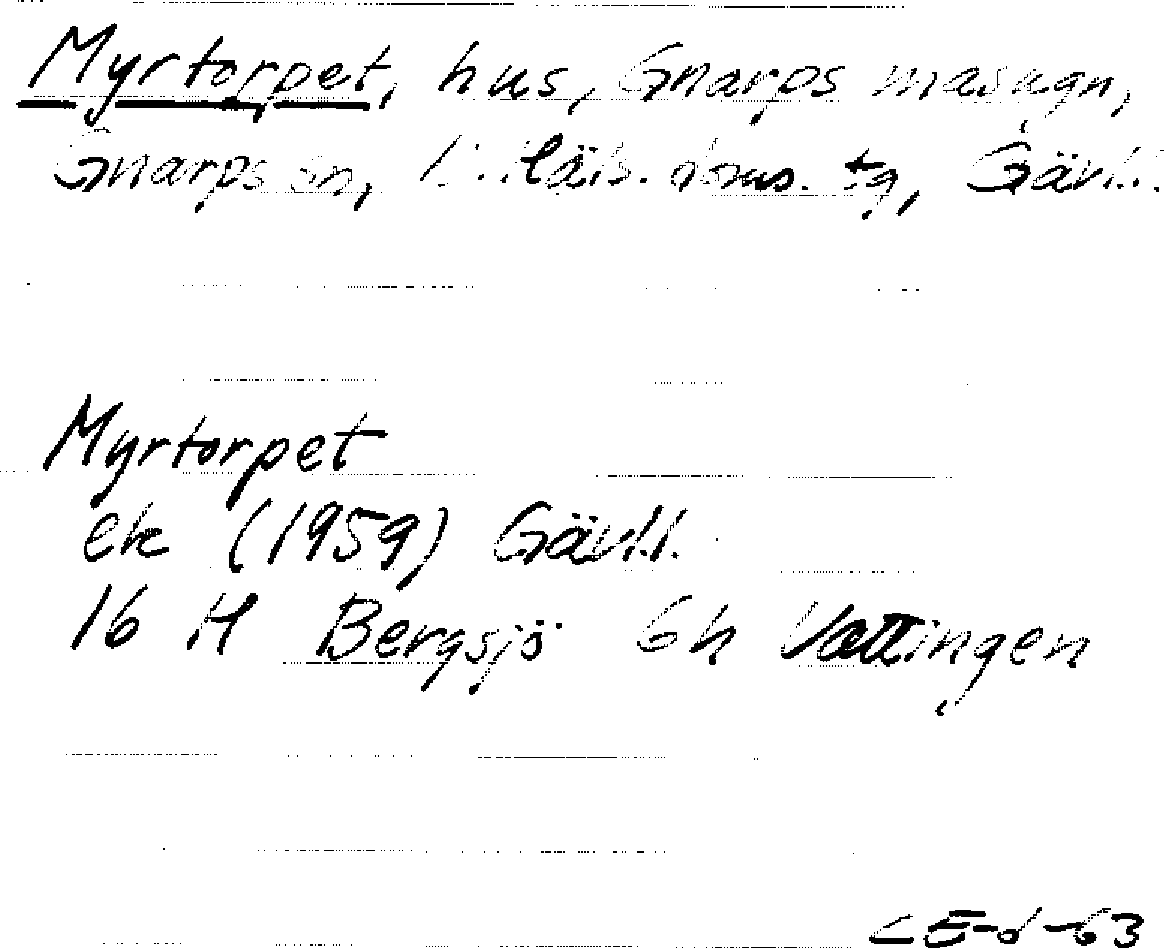 Myrtorpet, hus, Gnarps masugn,
Gnarps sn, Häls. doms. tg, Gävl.l.
Myrtorpet
ek (1959) Gävl.l.
16 H Bergsjö 6h Vattingen